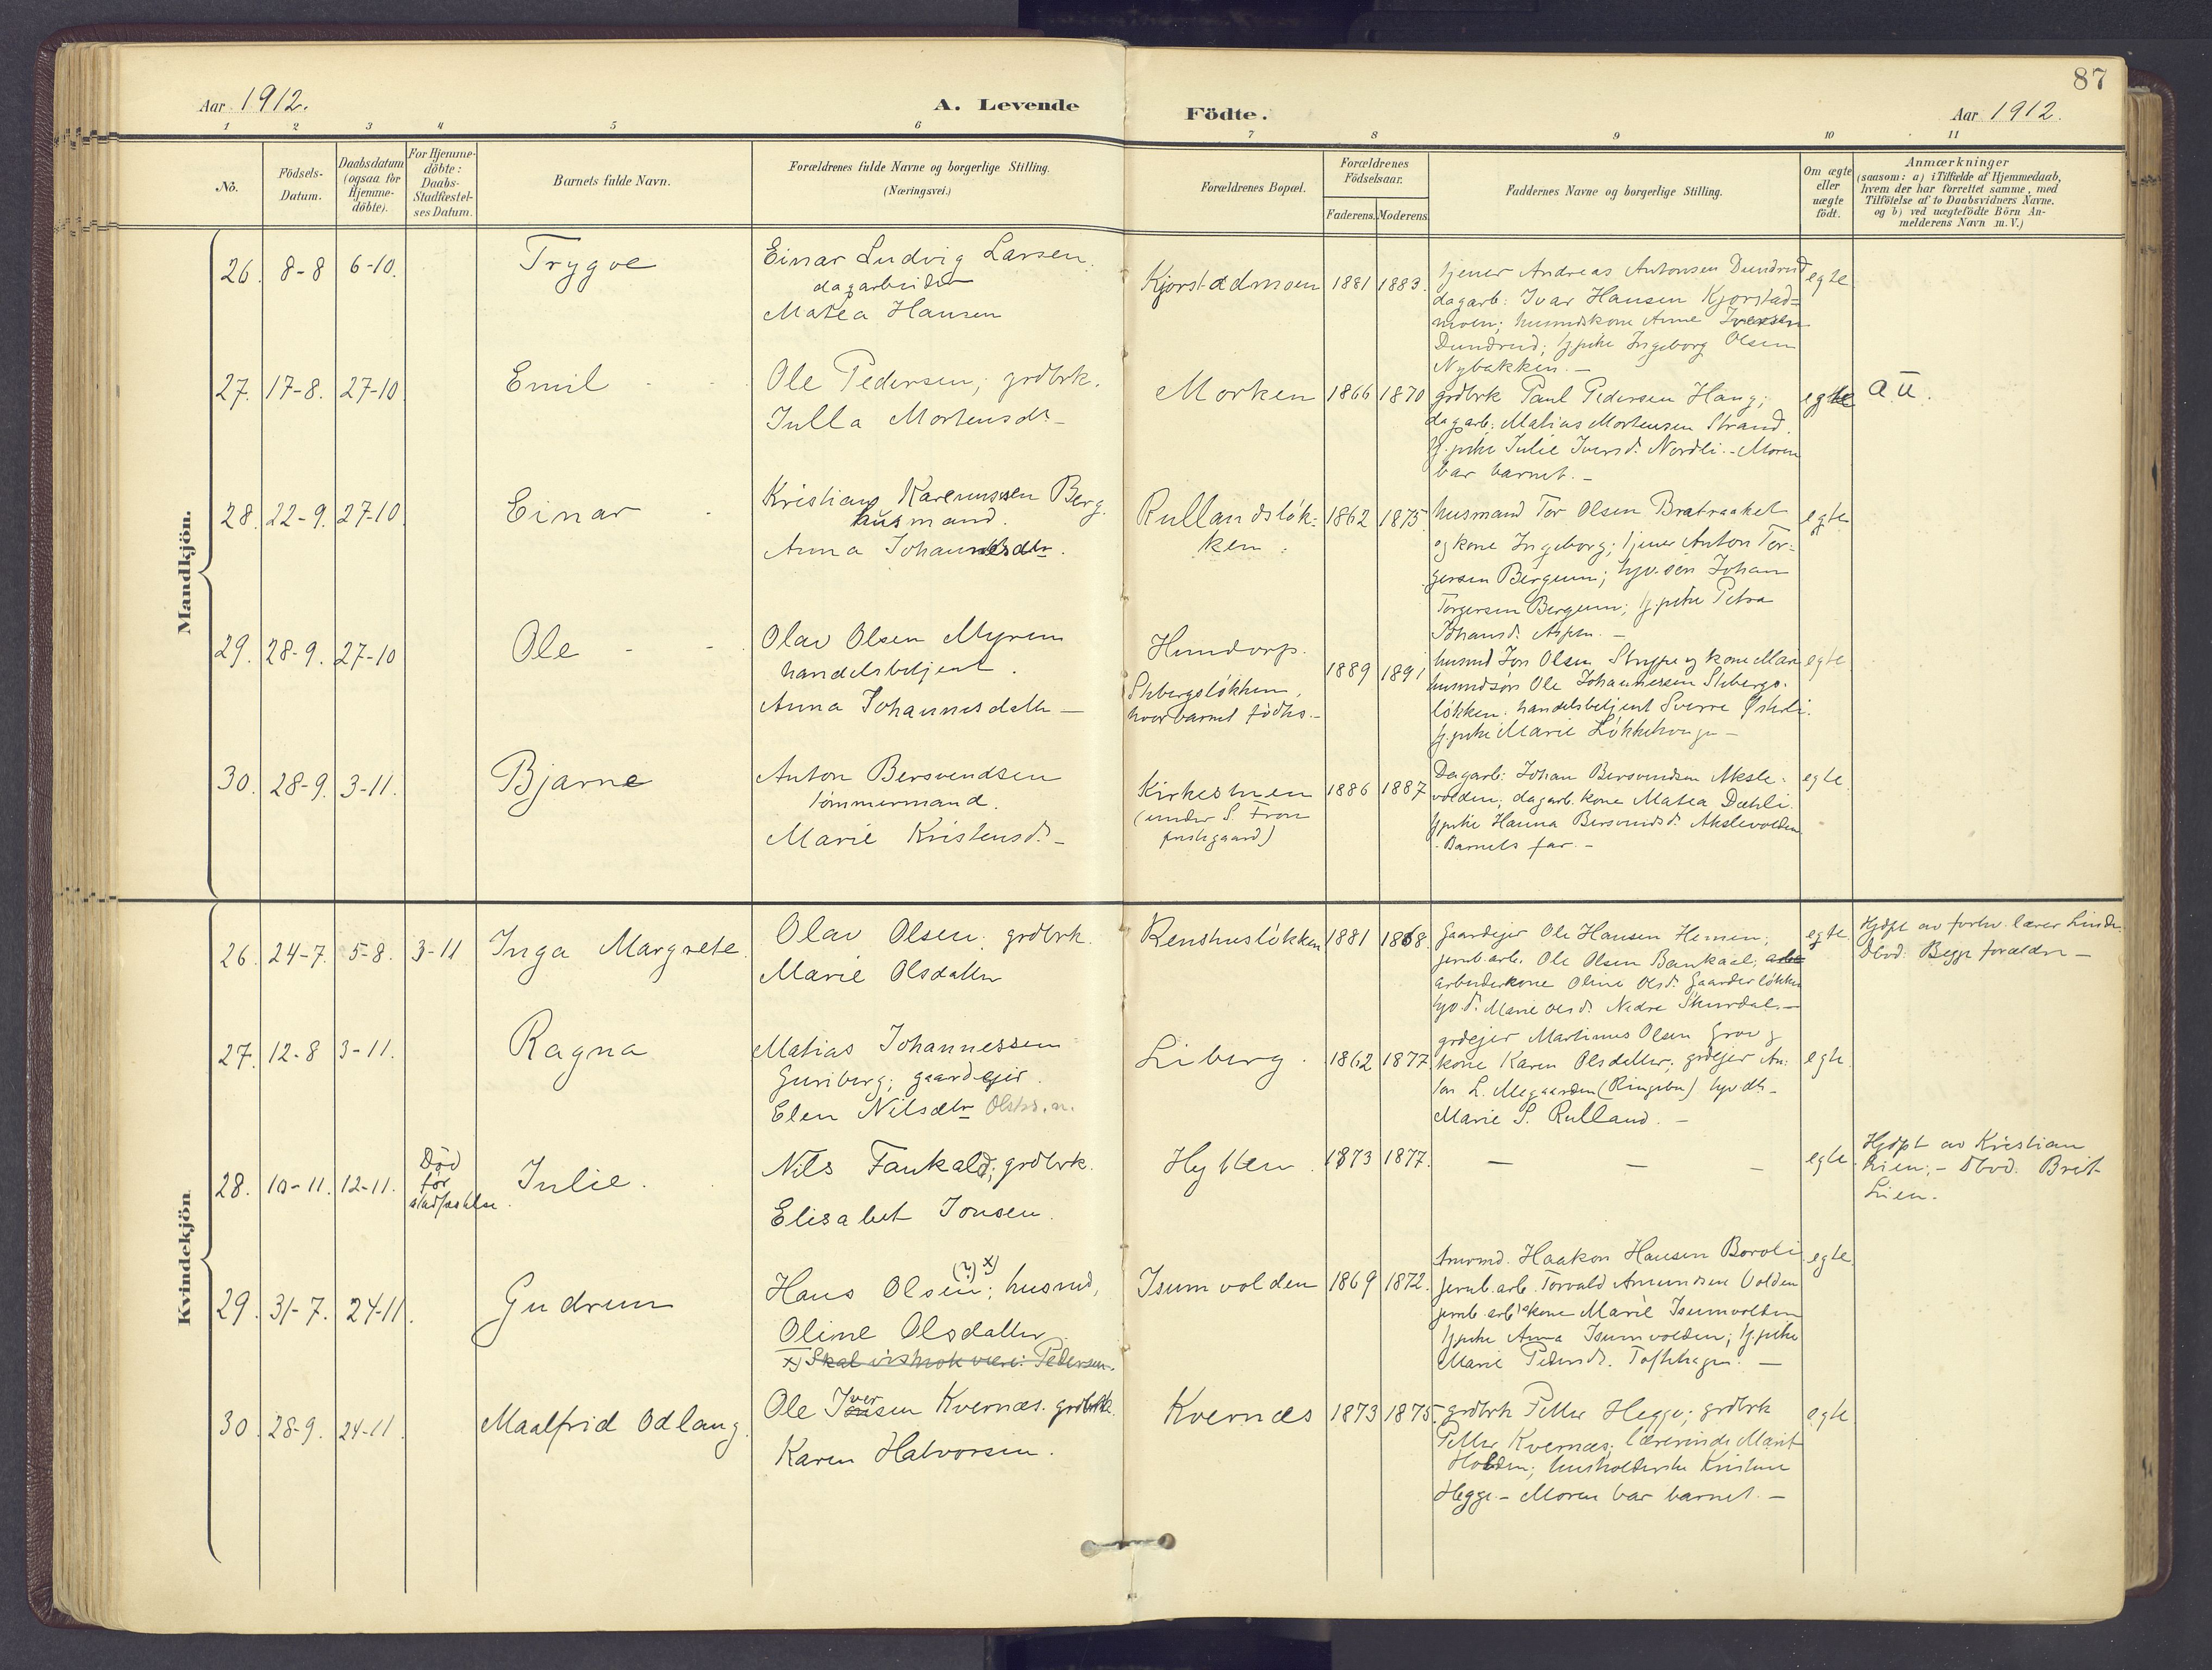 87
Aar 1912.
A. Levende
Födte.
Aar 1912.
1 2 3 4 5 6 7 8 9 10 11
No.
Födsels-
Datum.
Daabsdatum
(ogsaa for
Hjemme-
döbte).
For Hjemme-
döbte:
Daabs-
Stadfæstel-
ses Datum.
Barnets fulde Navn.
Forældrenes fulde Navne og borgerlige Stilling.
(Næringsvei.)
Forældrenes Bopæl.
Forældrenes
Födselsaar.
Faderens. Moderens.
Faddernes Navne og borgerlige Stilling.
Om ægte
eller
uægte
födt.
Anmærkninger
(saasom: a) i Tilfælde af Hjemmedaab,
hvem der har forrettet samme, med
Tilföielse af to Daabsvidners Navne.
og b) ved uægtefödte Börn An-
melderens Navn m. V.)
Mandkjön.
26. 8-8 6-10. Trygve
Einar Ludvig Larsen,
dagarbeider
Matea Hansen
Kjorstadmoen 1881 1883.
tjener Andreas Antonsen Dundrud
dagarb: Ivar Hansen Kjorstad=
moen; husmdskone Anne Iversen
Dundrud; gpike Ingeborg Olsen
Nybakken. -
egte
27. 17-8. 27-10. Emil
Ole Pedersen, grdbrk.
Julla Mortensdt -
Morken 1866 1870
grdbrk Paul Pedersen Haug;
dagarb. Matias Mortensen Strand.
g.pike Julie Iversd. Nordli. - Moren
bar barnet. -
egte a u.
28. 22-9. 27-10. Einar
Kristian Karenussen Berg.
husmand.
Anna Johannesdtr.
Rullandsløk=
ken. 1862 1875.
husmand Tor Olsen Bratraaket
og kone Ingeborg; tjener Anton Tor=
gersen Bergum; Johan
Torgersen Bergum; g.pike Petra
Johansd. Aspen. -
egte
29. 28-9. 27-10 Ole
Olav Olsen Myren
handelsbetjent.
Anna Johannesdatter -
Hundorp.
hvor barnet fødtes. -
1889 1891
husmd Jon Olsen og kone Mari
husmdsøn Ole Johannessen
løkken. handelsbetjent Sverre
g.pike Marie Løkkehaugen -
egte
30. 28-9. 3-11. Bjarne
Anton Bersvendsen
tømmermand.
Marie Kristensd. -
Kirkestuen
(under S. Fron
prestegaard)
1886 1887
Dagarb: Johan Bersvendsen Aksle-
volden, dagarb. kone Matea Dæhli.
gpike Hanna Bersvendsd. Akslevolden
Barnets far. -
egte
Kvindekjön.
26. 24-7. 5-8. 3-11 Inga Margrete.
Olav Olsen, grdbrk.
Marie Olsdatter
Renshusløkken 1881 1868.
Gaardejer Ole Hansen Hemen;
jernb.arb. Ole Olsen Baukaal;
arbeiderkone Oline Olsd. Gaarderløkken
Marie Olsd. Nedre Skurdal. -
egte
Hjdpt av forhv. lærer Linde.
Dbvd. Begge forældre -
27. 12-8 3-11. Ragna
Matias Johannessen
Guriberg; gaardejer.
Elen Nilsdtr
Liberg. 1862 1877
grdejer Martinus Olsen Grov og
kone Karen Olsdatter; grdejer An=
ton L. Megaarden (Ringebu)
Marie S. Rulland. -
egte
28. 10-11. 12-11. Død
før
stadfæstelse. Julie.
Nils Faukald, grdbrk.
Elisabet Jonsen.
Hytten. 1873 1877. - - -
egte
Hjdpt av Kristian
Lien; - Dbvd. Brit
Lien.
29. 31-7. 24-11. Gudrun
(?) x)
Hans Olsen; husmd,
Oline Olsdatter
x) Skal visstnok være: Pedersen.
Isumvolden 1869 1872.
Haakon Hansen Baroli
jernb.arb. Torvald Amundsen Volden
jernb.arb's kone Marie Isumvolden
gpike Anna Isumvolden; g.pike
Marie Pedersd. Toftehagen. -
egte
30. 28-9. 24-11. Maalfrid Odlaug.
Ole Iversen Kvernæs. grdbrk.
Karen Halvorsen.
Kvernæs 1873 1875.
grdbrk Petter Hegge; grdbrk
Petter Kvernæs; lærerinde Marit
Holden; husholderske Kristine
Hegge. - Moren bar barnet. -
egte